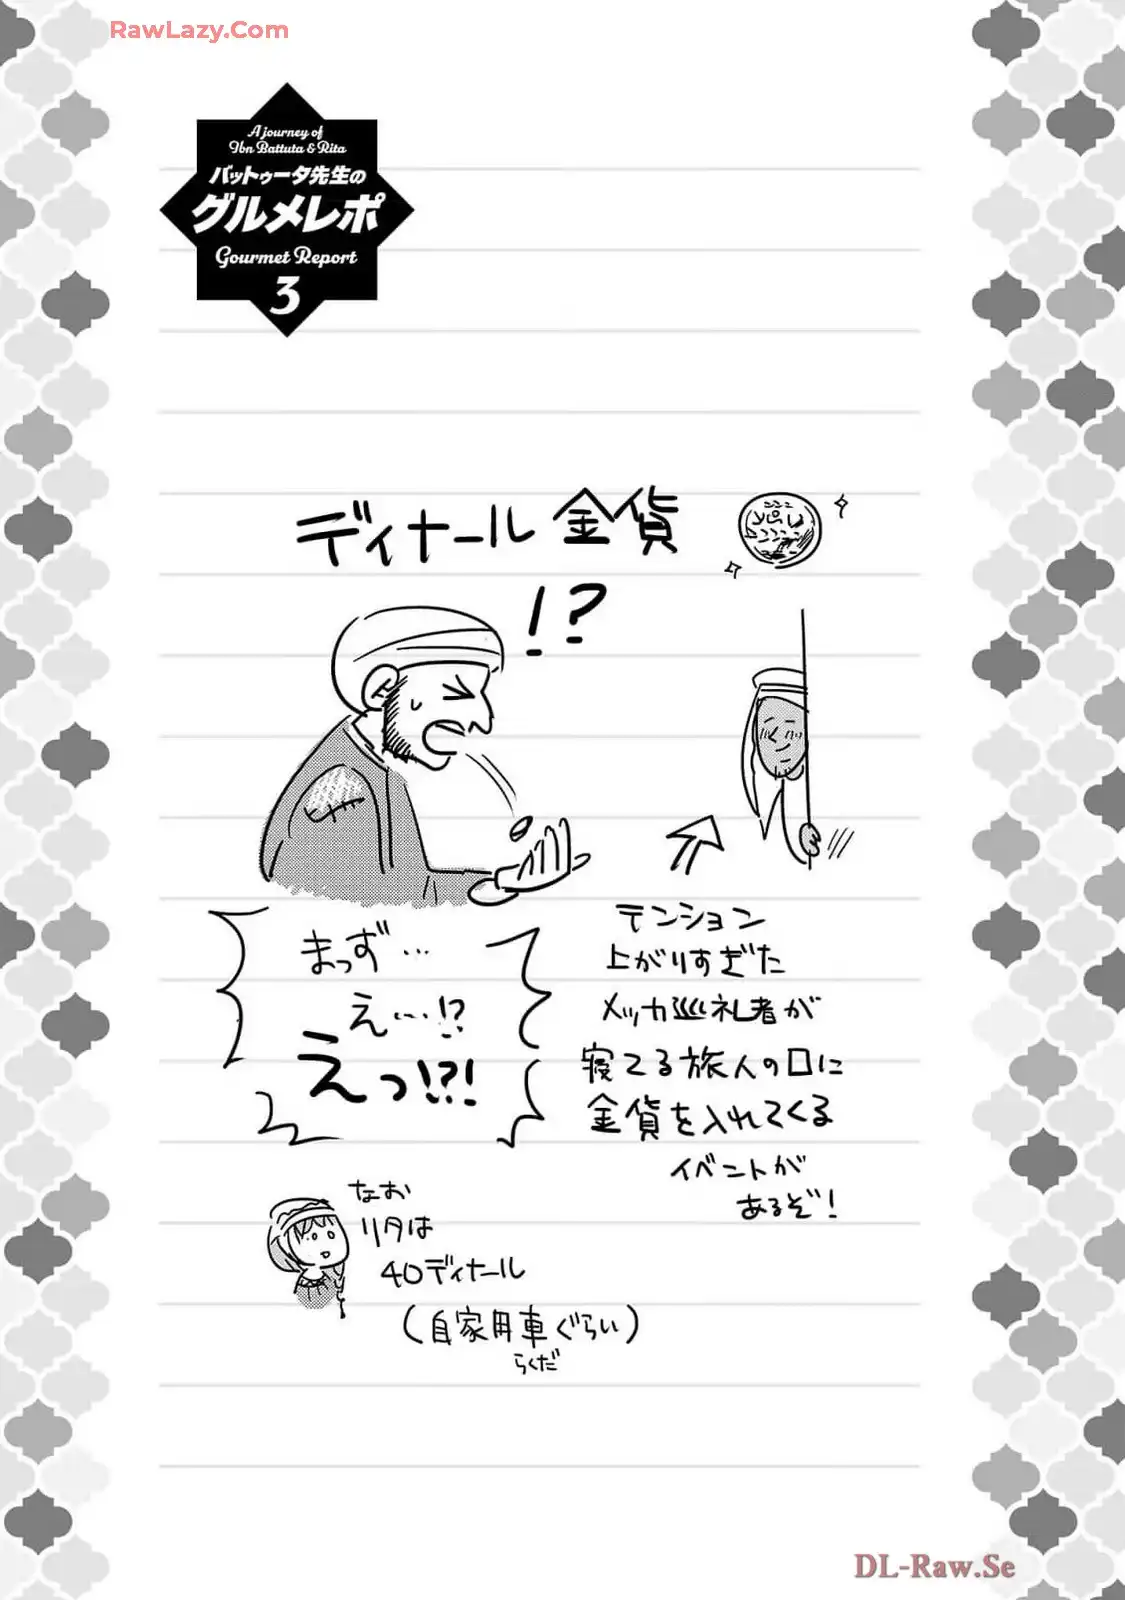 RawLazy.Com
A journey of
Ibn Battuta & Rita
バットゥータ先生の
グルメレポ
Gourmet Report
3
ディナール金貨
!?
まっず…
え…!?
えっ!?!
テンション
上がりすぎた
メッカ巡礼者が
寝てる旅人の口に
金貨を入れてくる
イベントが
あるぞ!
なお
リタは
40ディナール
(自家用車ぐらい)
らくだ
DL-Raw.Se